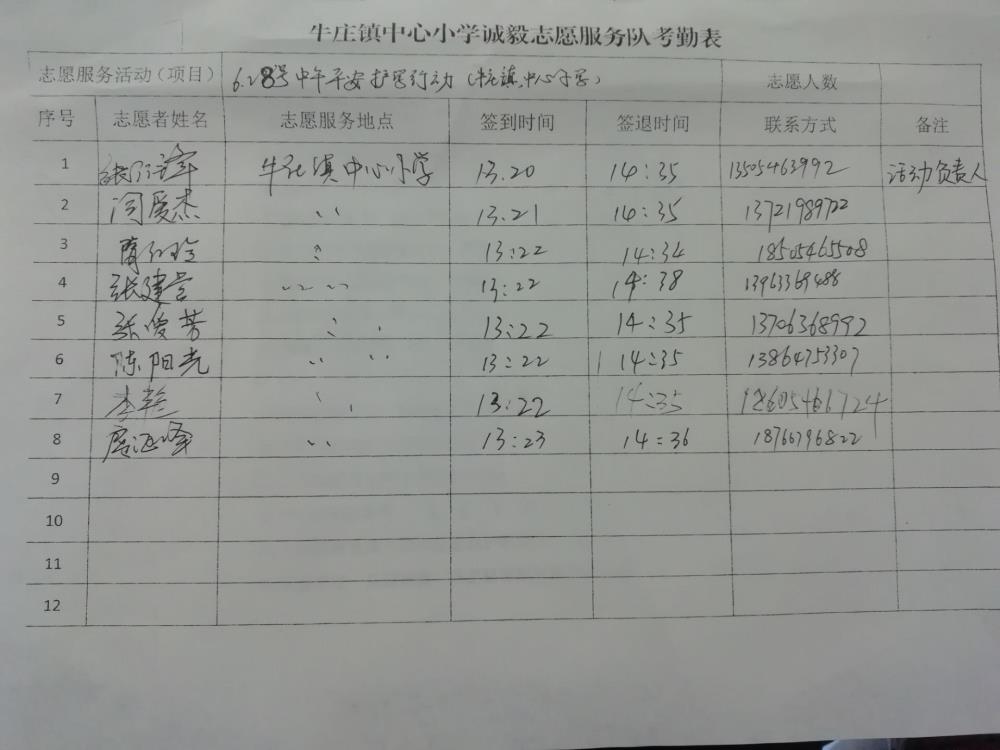 牛庄镇中心小学诚毅志愿服务队考勤表
志愿服务活动（项目） 6.28号中午平安护学行动（牛庄镇中心小学） 志愿人数
序号 志愿者姓名 志愿服务地点 签到时间 签退时间 联系方式 备注
1 牛庄镇中心小学 13.20 14:35 13505463992 活动负责人
2 闫爱杰 〃 13:21 14:35 13721989722
3 〃 13:22 14:34 18505465508
4 张建营 〃 〃 13:22 14:38 13963369488
5 张俊芳 〃 13:22 14:35 13706368992
6 陈阳光 〃 〃 13:22 14:35 13864753307
7 〃 13:22 14:35 18605466724
8 〃 13:23 14:36 18766796822
9
10
11
12